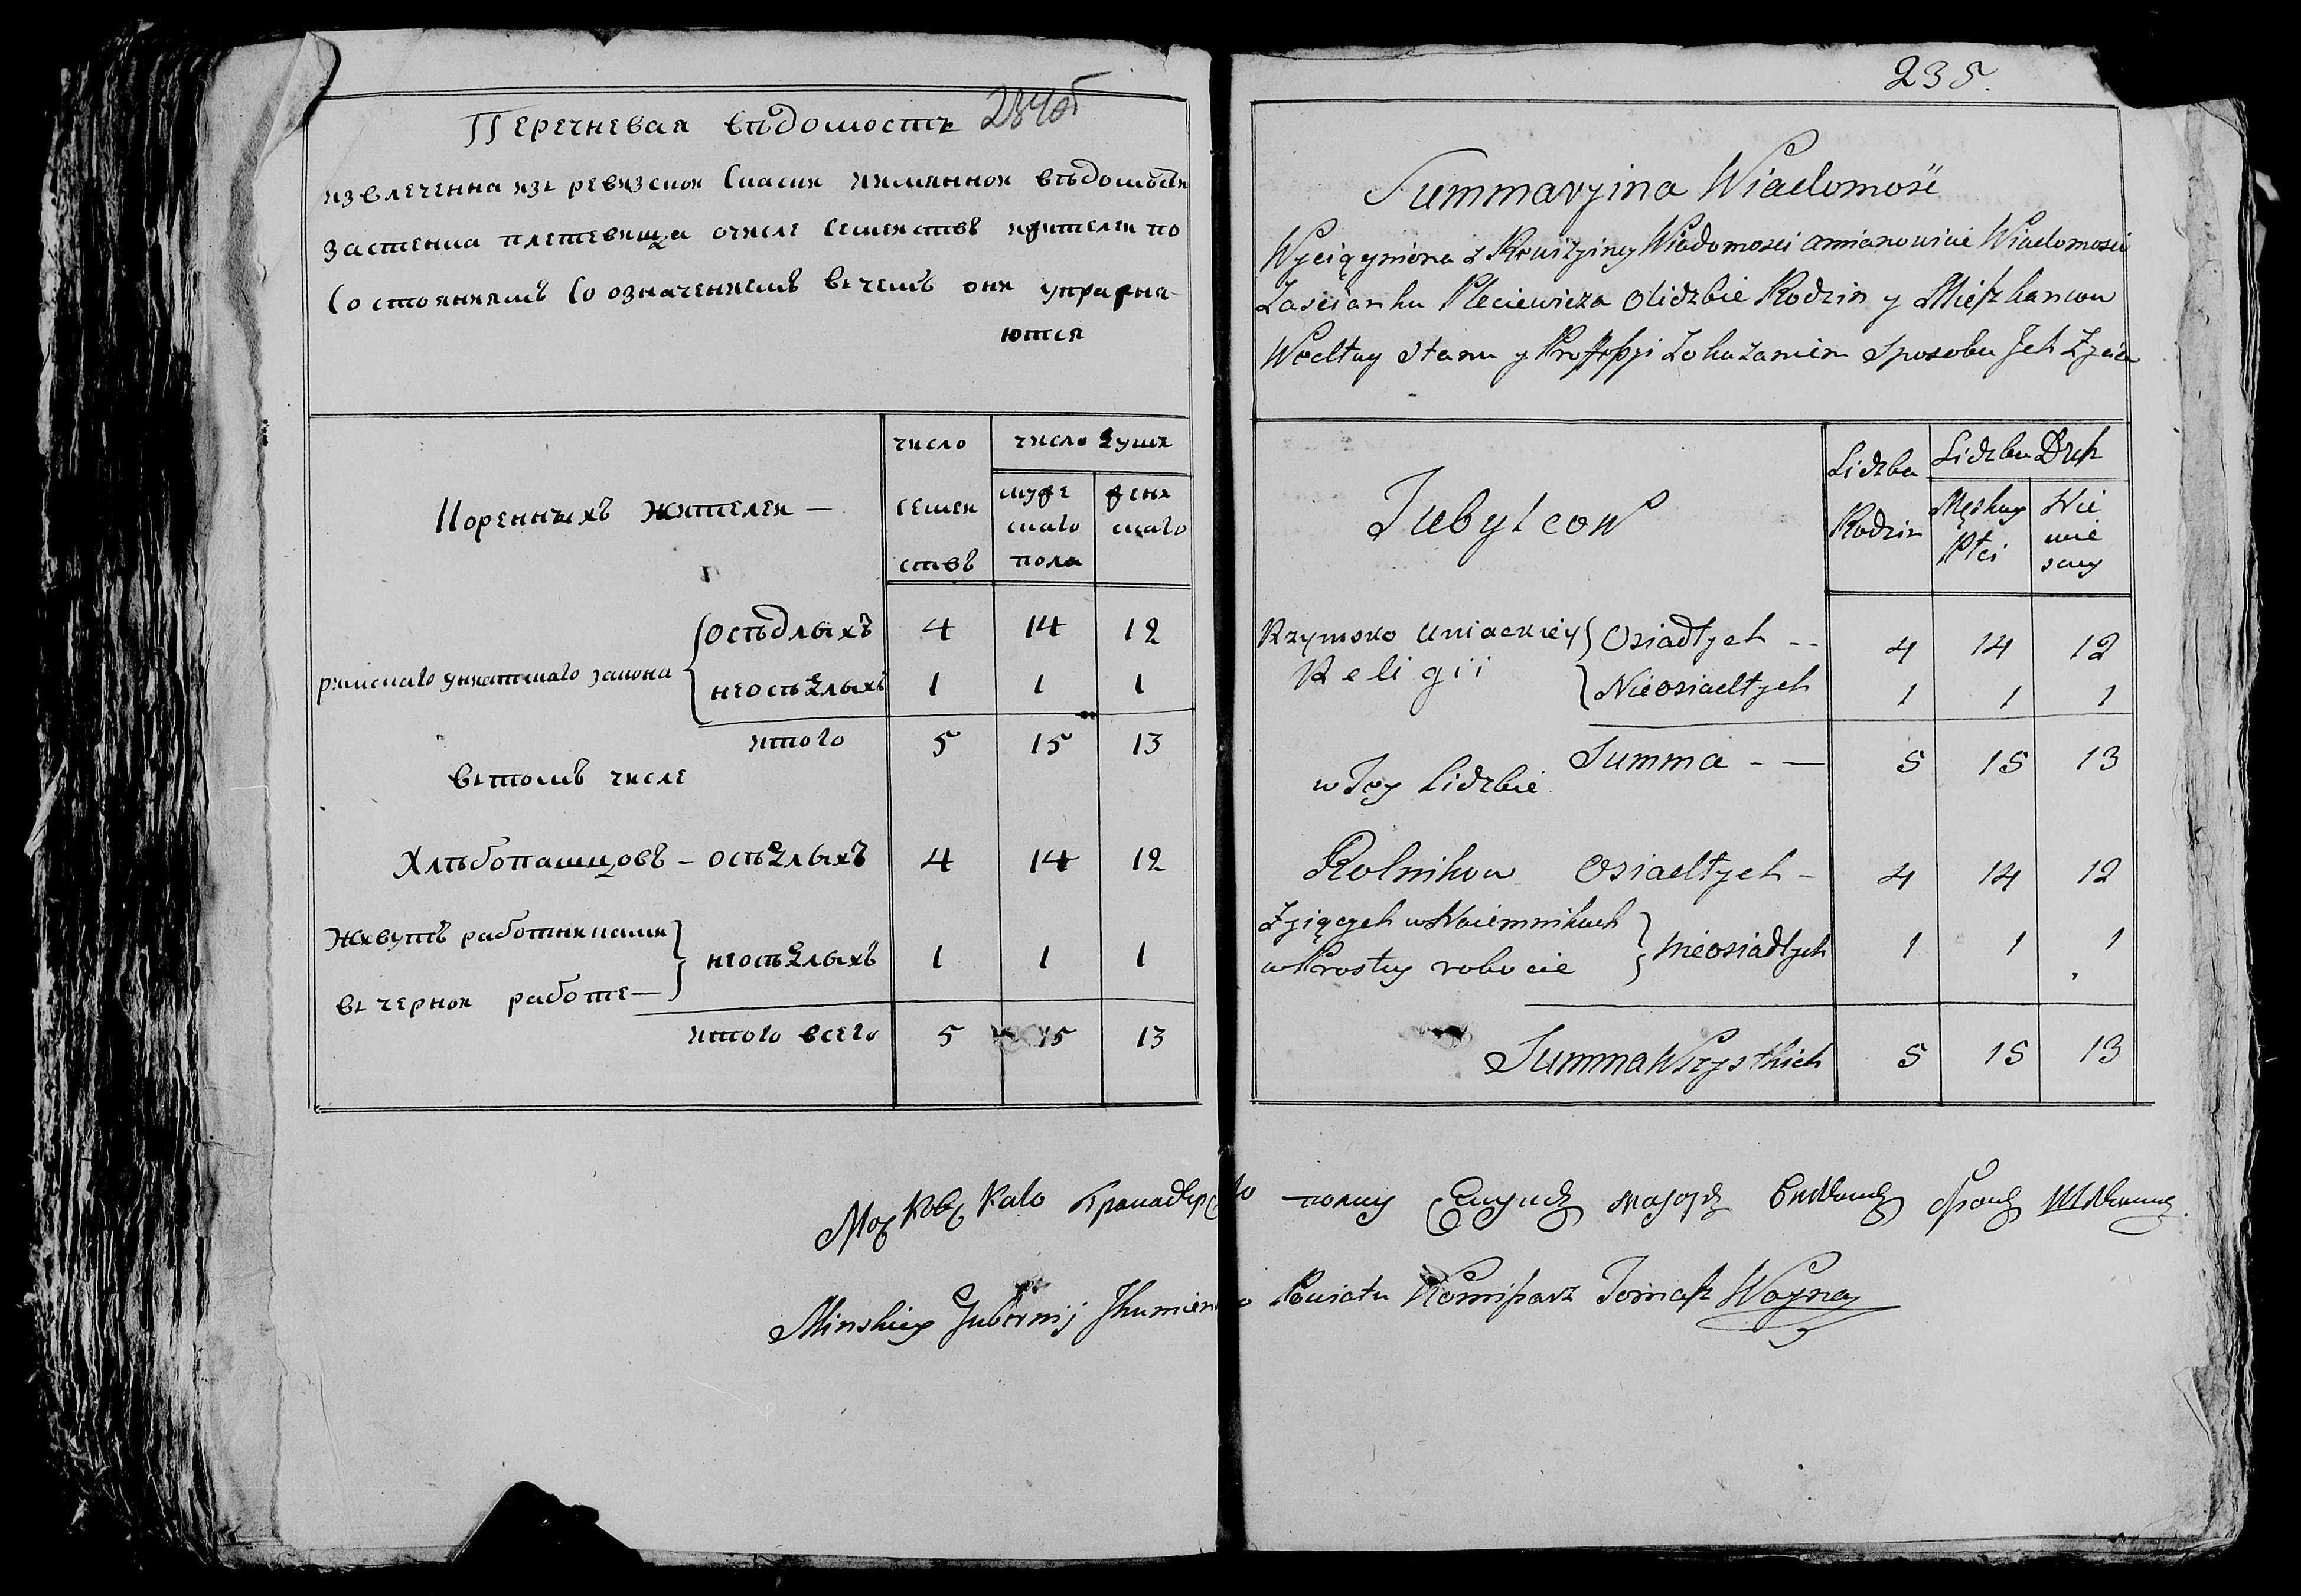 Перечневая вѣдомость
извлеченна изъ ревизской Скаски имяннои вѣдомости
застенка плетевища очисле семеиствъ ижителеи по
Состояниямъ Со означениемъ въ чемъ они упражня-
ются
Коренныхъ Жителеи —
число семеиствъ
число душъ
мужескаго пола
женскаго
римскаго униатскаго закона
осѣдлыхъ 4 14 12
неосѣдлыхъ 1 1 1
итого 5 15 13
въ томъ числе
Хлѣбопашцовъ – осѣдлыхъ 4 14 12
Живутъ работниками
въ чернои работе —
неосѣдлыхъ 1 1 1
итого всего 5 15 13
235.
Summaryina Wiadomość
Wyciągniona z Rewizyiney Wiadomosci amianowicie Wiadomosci
Zascianku Pleciewicza olidzbie Rodzin y Mieszkancow
Według Stanu y Proffessyi zokazaniem sposobu Jch Zycia
Tubylcow
Lidzba Rodzin
Lidzba Dusz
Męskiey Płci
Niewiesciey
Rzymsko Uniackiey Religii
Osiadłych - - 4 14 12
Nieosiadłych 1 1 1
Summa - — 5 15 13
w Tey Lidzbie
Rolnikow Osiadłych - 4 14 12
Zyiących w Naiemnikach
w Prostey robocie
Nieosiadłych 1 1 1
Summa Wszystkich 5 15 13
Московскаго Гренадерскаго полку Секундъ маіоръ
Minskiey Gubernij Jhumien Powiatu Komissarz Tomasz Woyna